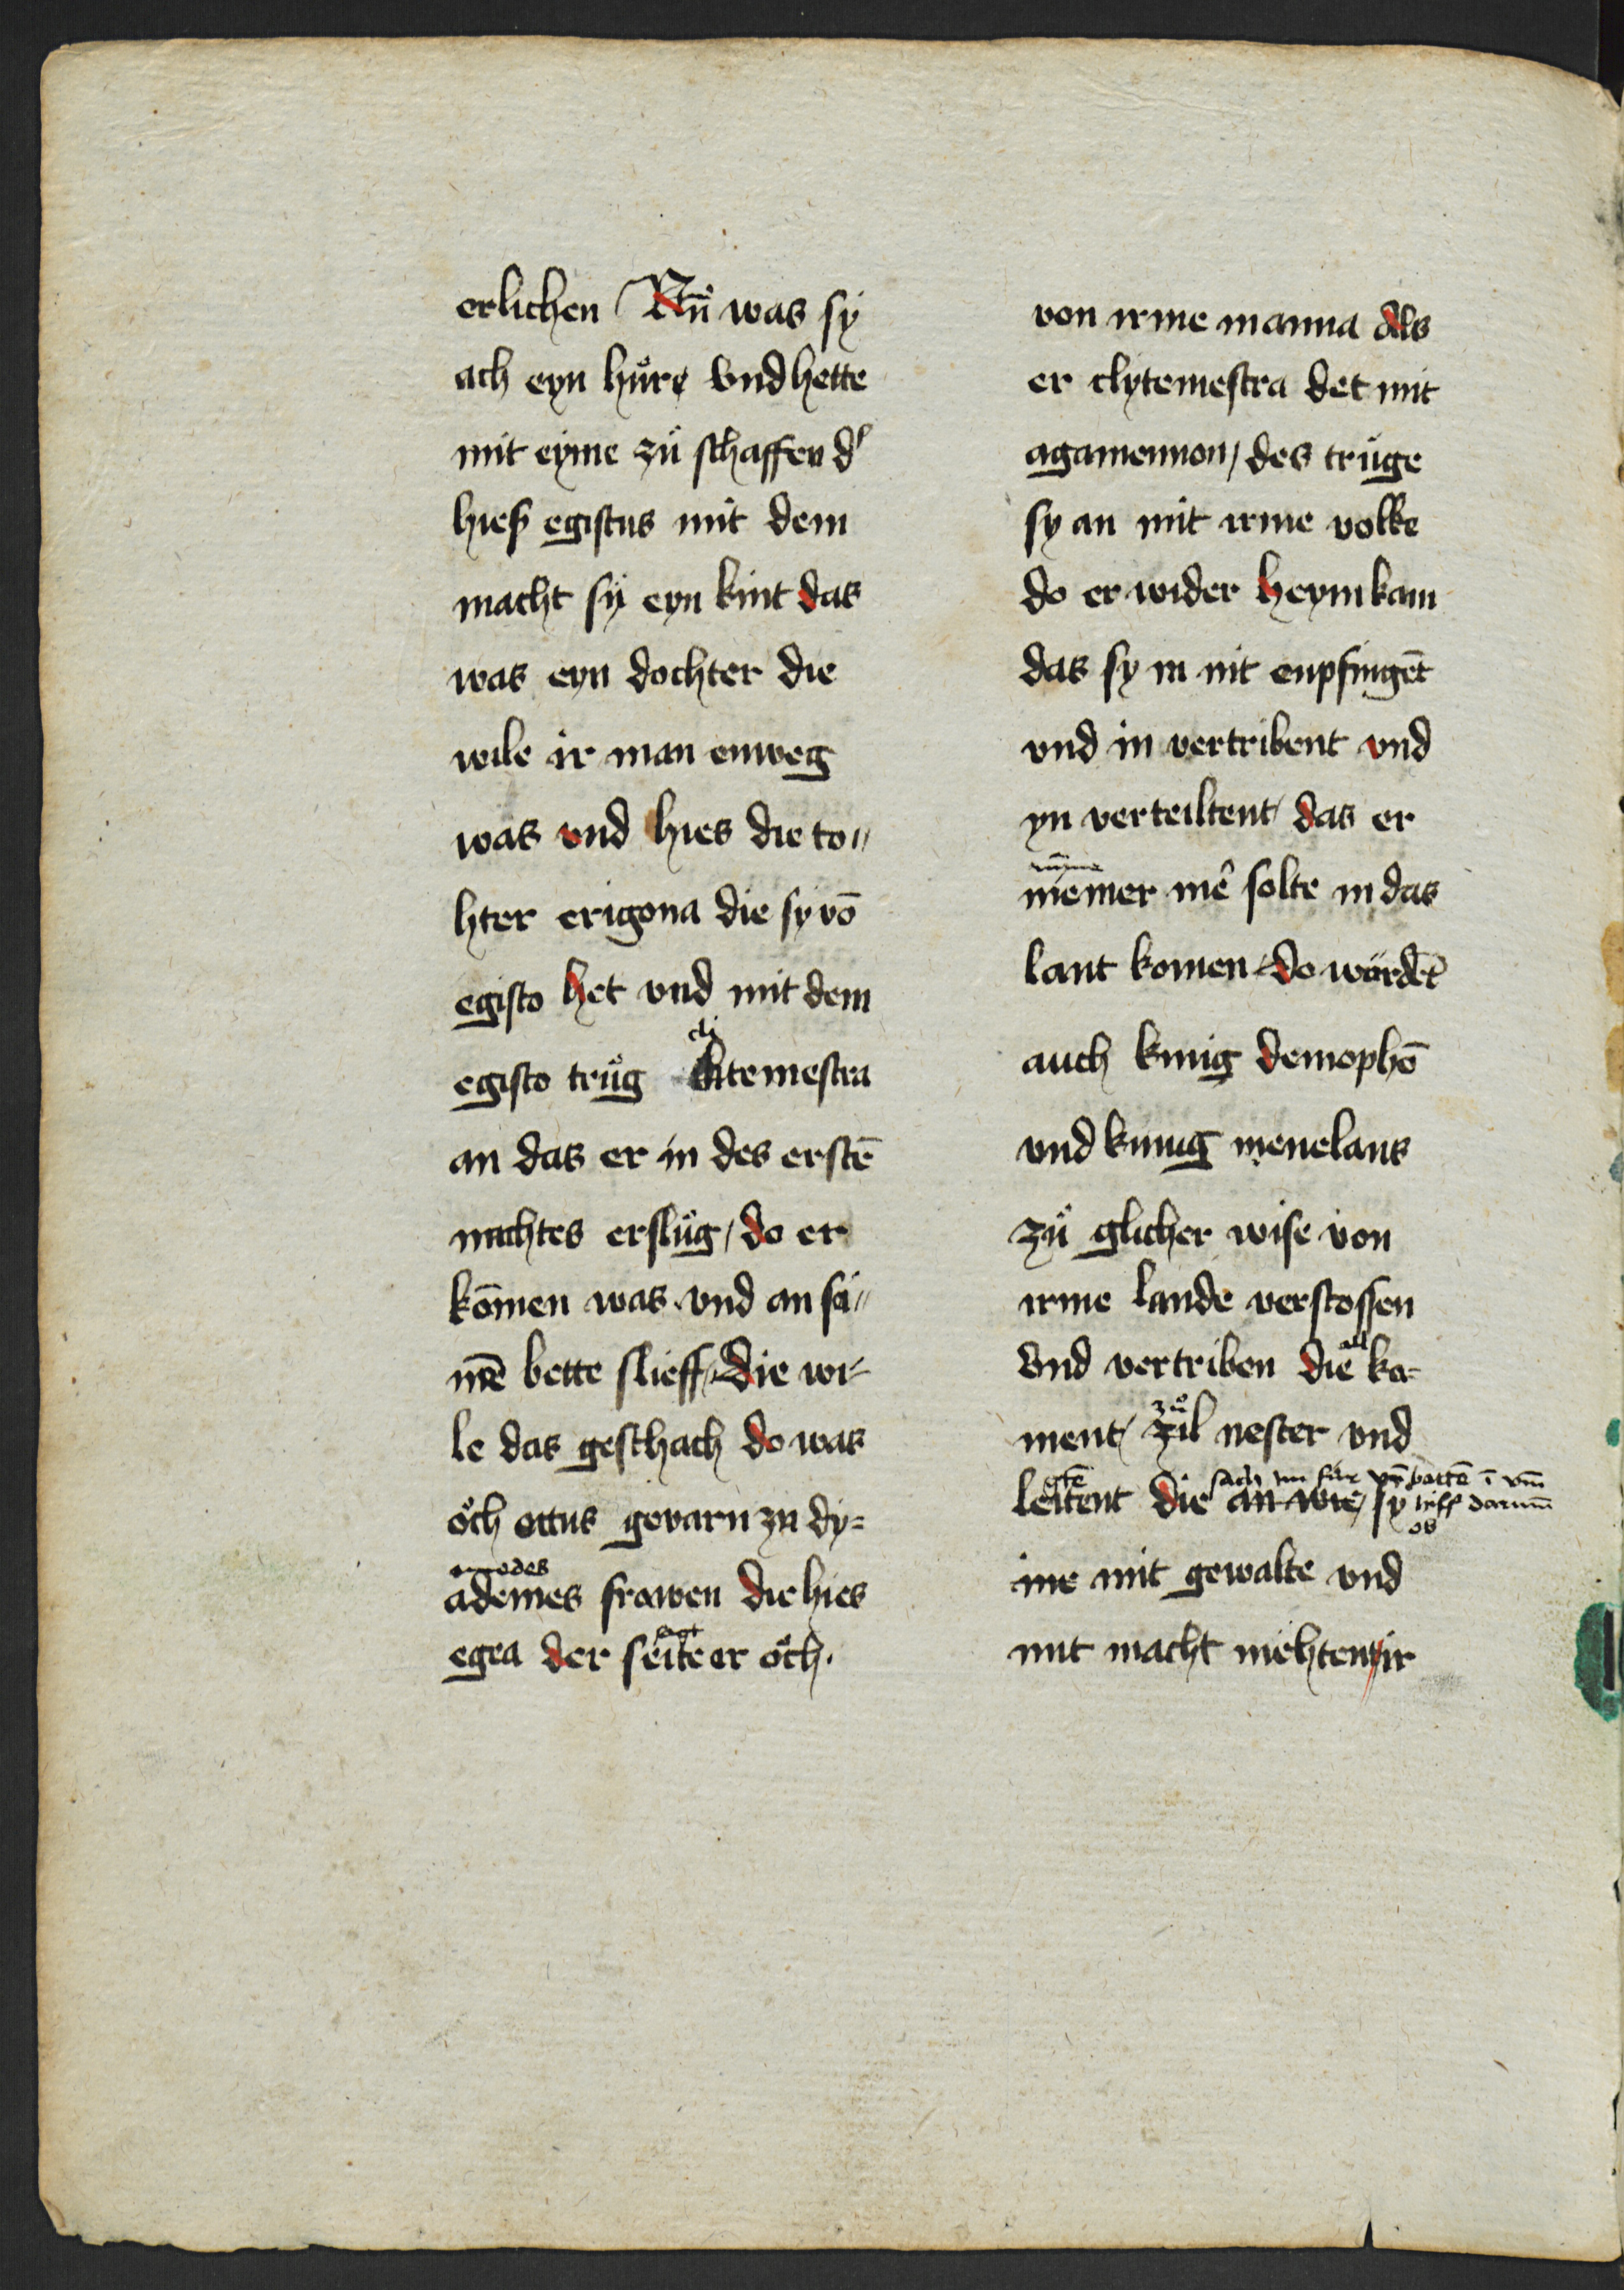 erlichen Nuͦ was sy
ach eyn huͦre vnd hette
mit eyme zuͦ schaffen d'
hieß egistus mit dem
macht sÿ eyn kint das
was eyn dochter die
wile ir man enweg
was vnd hies die to〃
hter erigona die sy vō
egisto het vnd mit dem
cli
egisto truͦg klitemestra
an das er in des erstē
nachtes ersluͦg / do er
kōmen was vnd an si〃
mē bette slieff / die wi⸗
le das geschach do was
oͤch ottus gevarn zu dy⸗
omedes
ademes frowen die hies
egea der seite er oͤch.
von irme manna Als
er clytemestra det mit
agamennon / des truͤge
sy an mit irme volke
do er wider heym kam
das sy in nit enpfingēt
vnd in vertribent vnd
yn verteiltent / das er
nÿmer
niemer mê solte in das
lant komen / do wurdēt
auch kunig demophō
vnd kunig menelaus
zuͦ glicher wise von
irme lande verstossen
vnd vertriben die all ko⸗
zuͦ
ment / zuͤl nester vnd
sach im für vn̄ battē ī vm̄
leitent die an wie / sy hilff darum̄
ob
ime mit gewalte vnd
mit macht mehtent ir